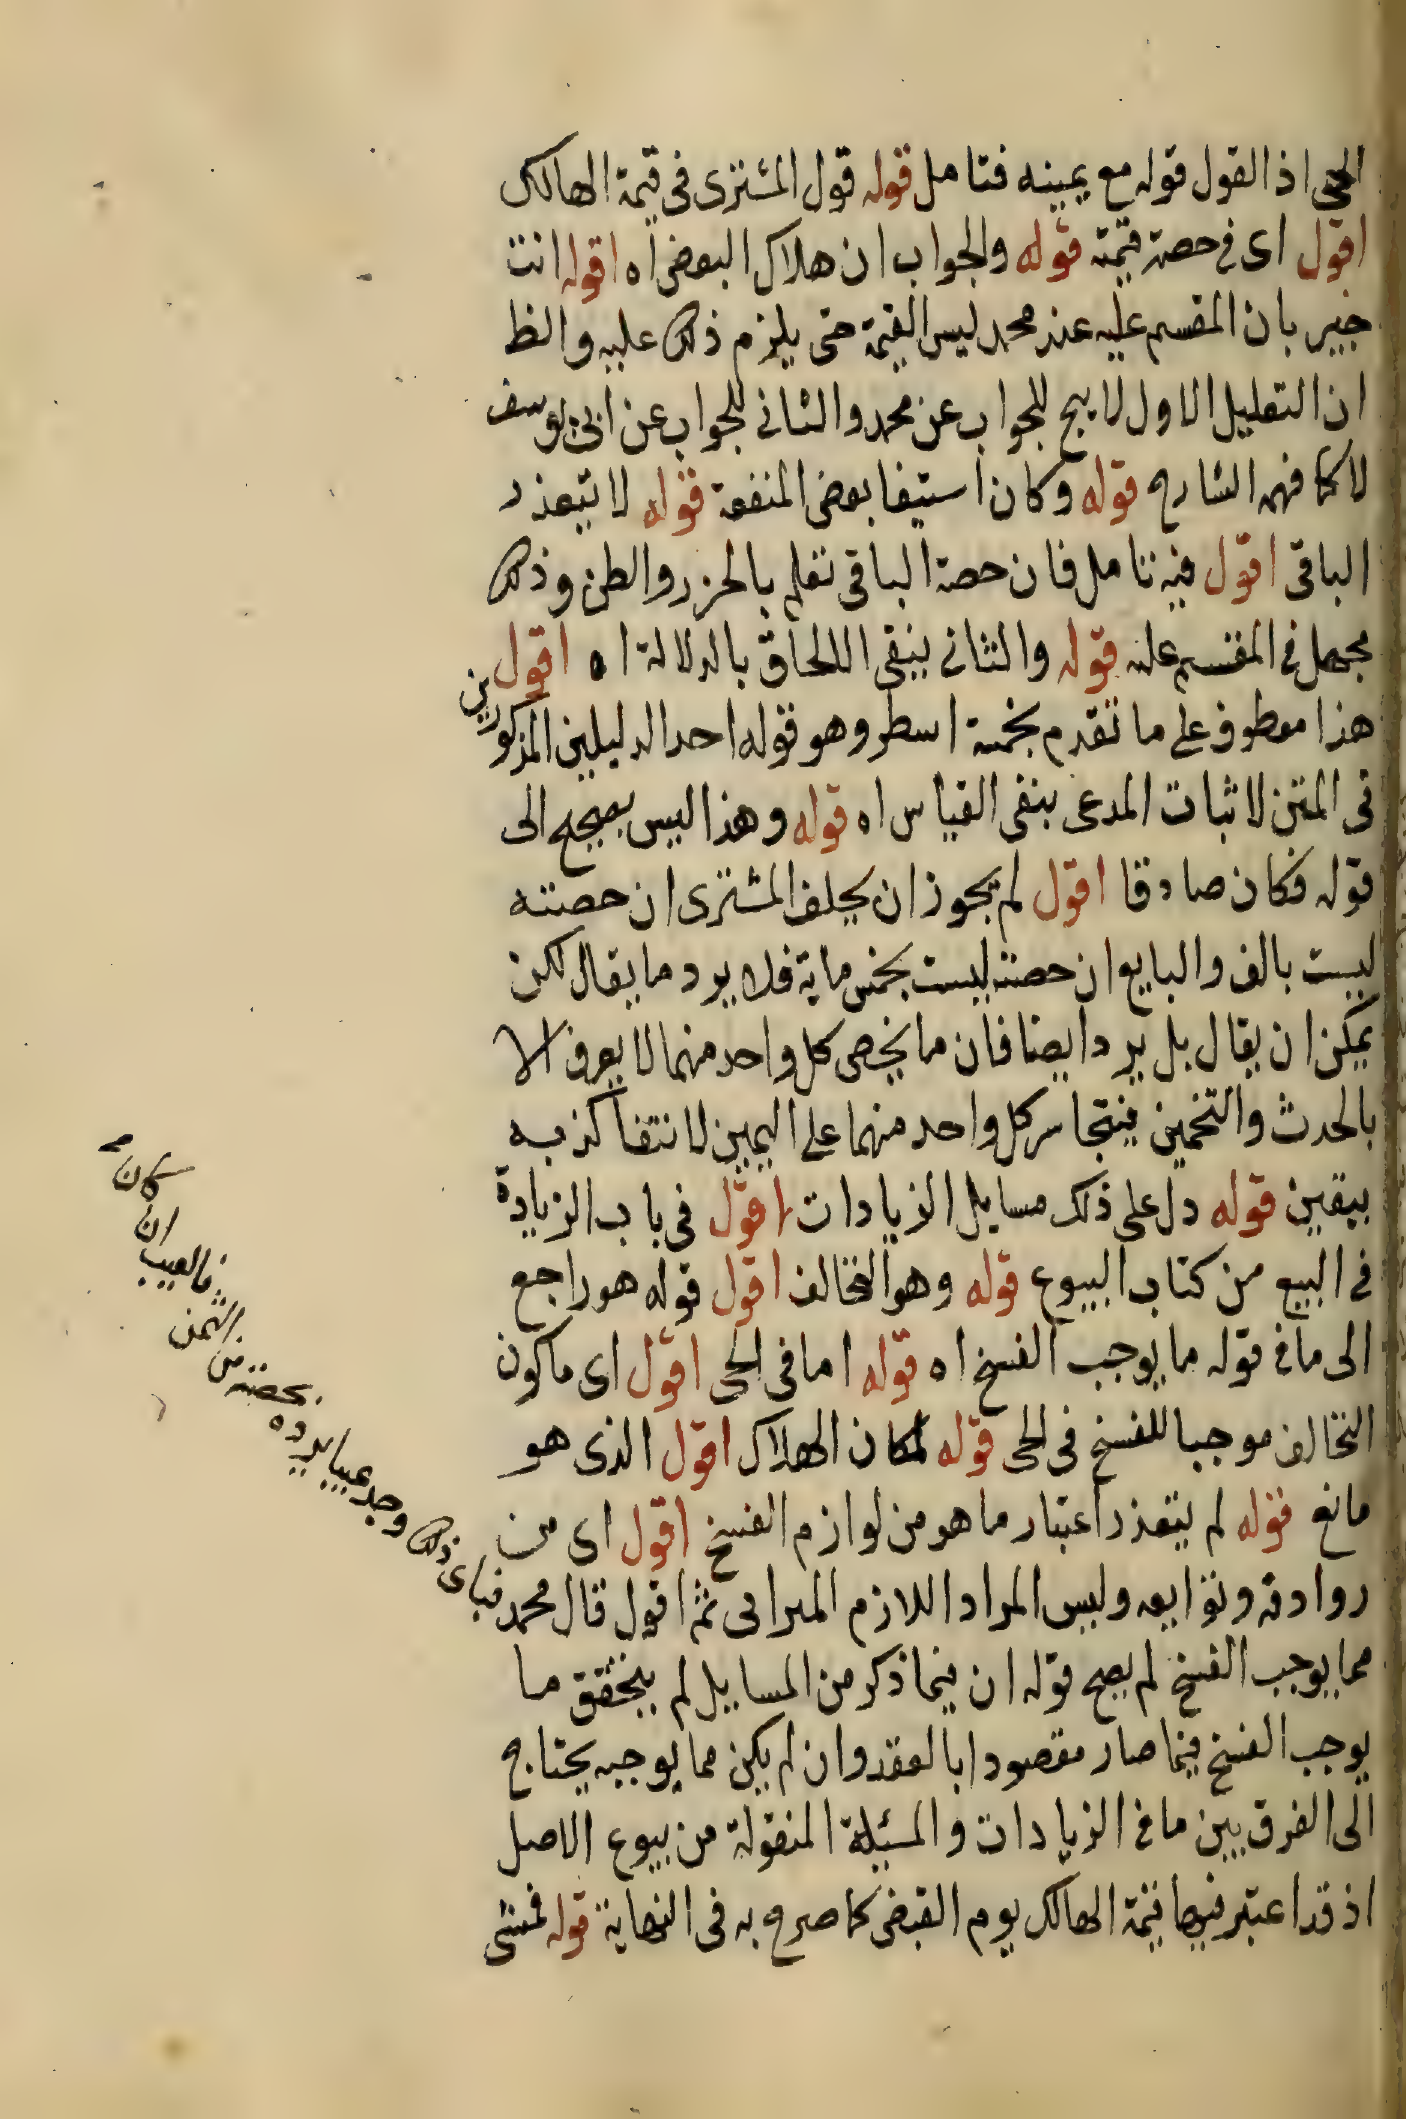 الحى اذ القول قوله مع يمينه فتامل قوله قول المشترى فى قيمة الهالك
اقول اى فى حصة قيمته قوله والجواب ان هلاك البعض اه اقوله انت
خبير بان المقسم عليه عند محمد ليس القيمة حتى يلزم ذلك عليه والظ
ان التعليل الاول لا يبح للجواب عن محمد والثانى للجواب عن ابى يوسف
لا كما فهمه الشارح قوله وكان استيفا بعض المنفعة قوله لا تتعذر
الباقى اقول فيه تامل فان حصة الباقى تعلم بالحزر والظن وذلك
مجهل فى المقسم عليه قوله والثانى ينفى الالحاق بالدلالة اه اقول
هذا معطوف على ما تقدم بخمسة اسطر وهو قوله احد الدليلين المذكورين
فى المتن لاثبات المدعى بنفى القياس اه قوله وهذا ليس بصحيح الى
قوله فكان صادقا اقول لم يجوز ان يحلف المشترى ان حصته
ليست بالف والبايع ان حصته ليست بخمس ماية فلا يرد ما يقال لكن
يمكن ان يقال بل يرد ايضا فان ما يخص كل واحد منهما لا يعرف الا
بالحدث والتخمين فيتجاسر كل واحد منهما على اليمين لانتفا كذبه
بيقين قوله دل على ذلك مسايل الزيادات اقول فى باب الزيادة
فى البيع من كتاب البيوع قوله وهو التخالف اقول قوله هو راجع
الى ما فى قوله ما يوجب الفسخ اه قوله اما فى الحى اقول اى ما كون
التخالف موجبا للفسخ فى الحى قوله لمكان الهلاك اقول الذى هو
مانع قوله لم يتعذر اعتبار ما هو من لوازم الفسخ اقول اى من
روادفه وتوابعه وليس المراد اللازم الميرانى ثم اقول قال محمد
مما يوجب الفسخ لم يصح قوله ان فيما ذكر من المسايل لم يتحقق ما
يوجب الفسخ فيما صار مقصودا بالعقد وان لم يكن مما يوجبه يحتاج
الى الفرق بين ما فى الزيادات والمسئلة المنقولة من بيوع الاصل
اذ قد اعتبر فيها قيمة الهالك يوم القبض كما صرح به فى النهاية قوله فمشى
فباى ذلك وجد عيبا يرده بحصته من الثمن فالعيب ان كان